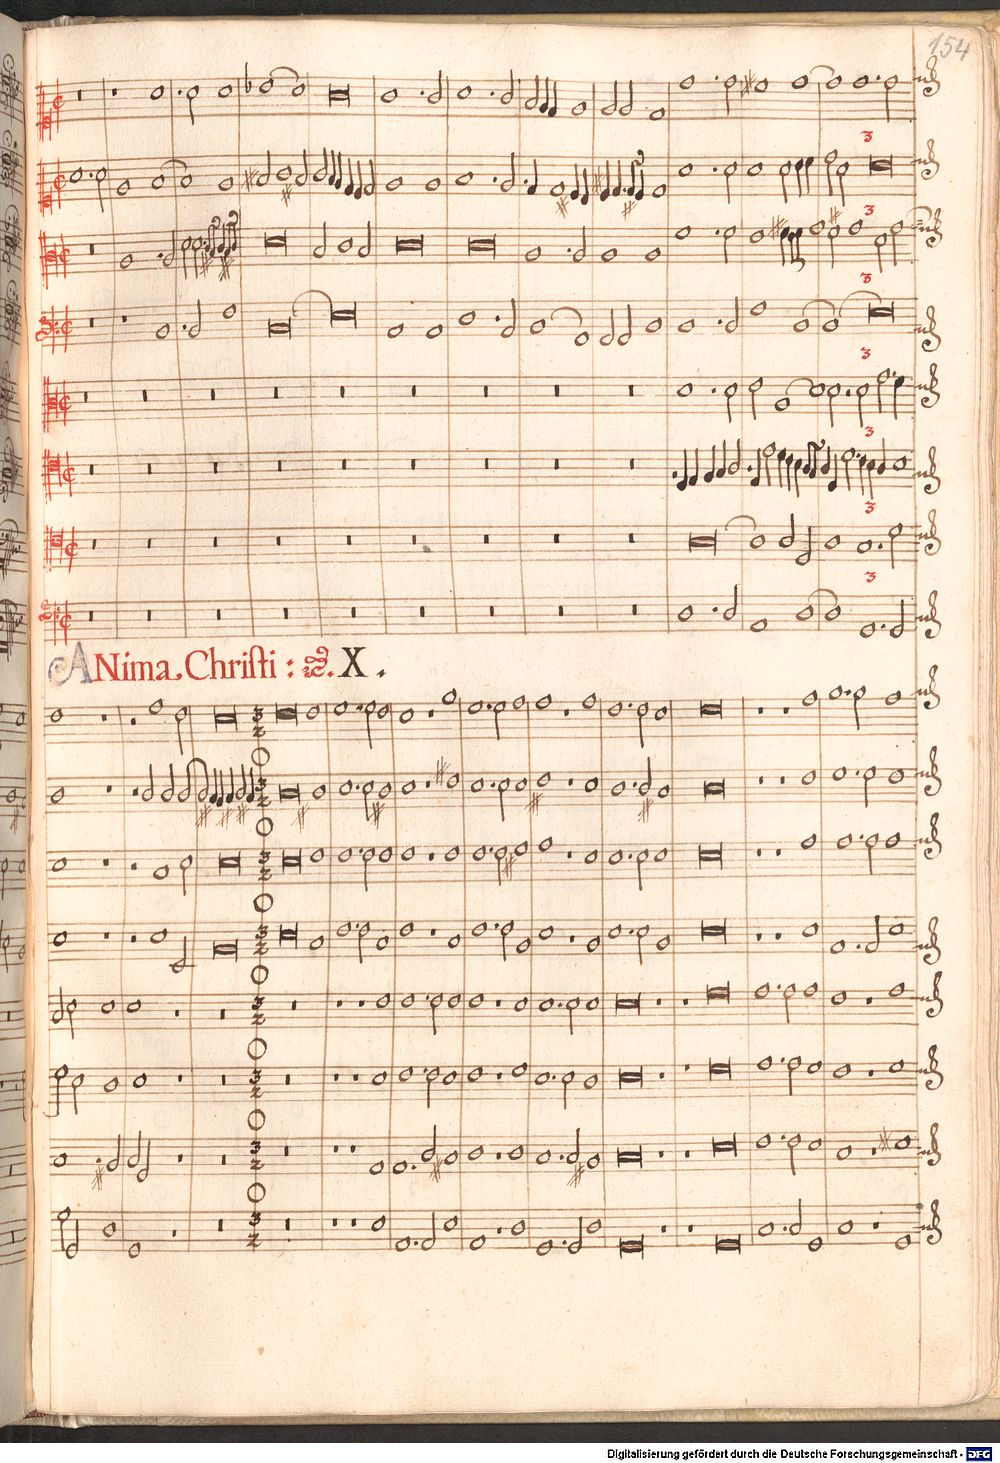 154
3
3
3
3
3
3
3
ANima Christi : 8. X.
Digitalisierung gefördert durch die Deutsche Forschungsgemeinschaft - DFG